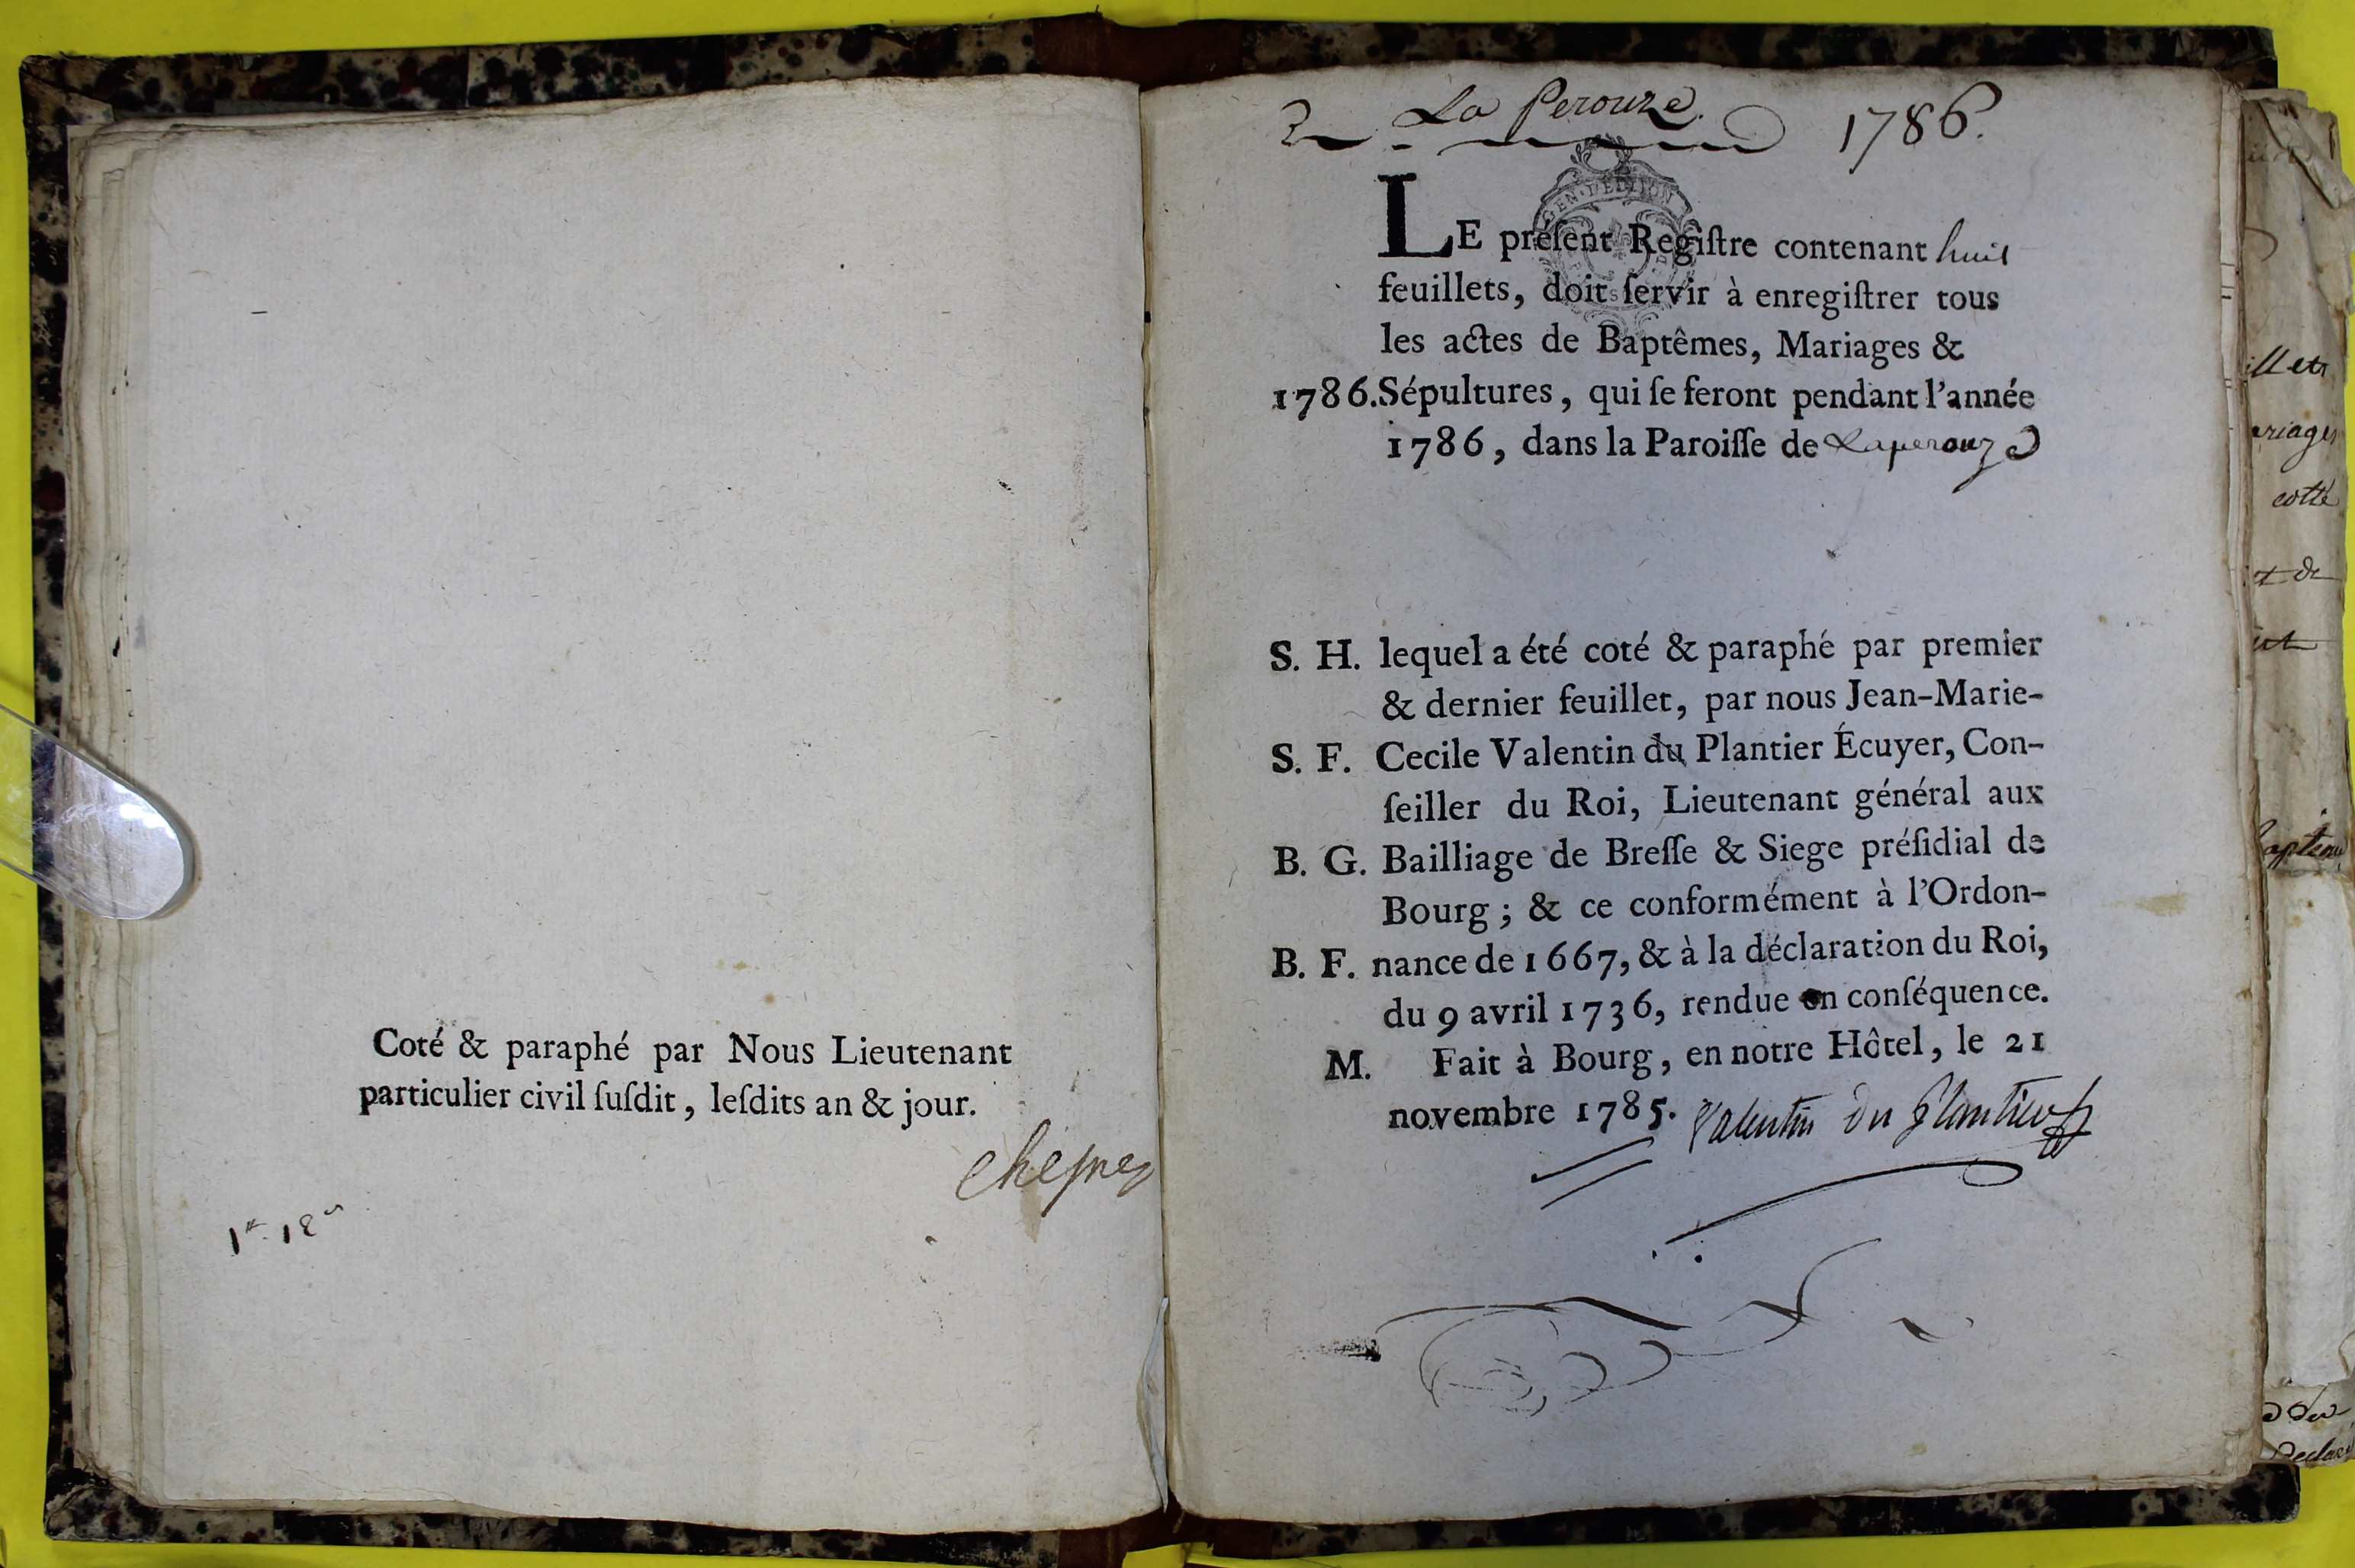 Coté & paraphé par Nous Lieutenant
particulier civil ſuſdit, leſdits an & jour.
La Perouze. 1786.
GEN. D'EDITION
LE préſent Regiſtre contenant huit
feuillets, doit ſervir à enregiſtrer tous
les actes de Baptêmes, Mariages &
1786. Sépultures, qui ſe feront pendant l'année
1786, dans la Paroiſſe de Laperouze
S. H. lequel a été coté & paraphé par premier
& dernier feuillet, par nous Jean-Marie-
S. F. Cecile Valentin du Plantier Écuyer, Con-
ſeiller du Roi, Lieutenant général aux
B. G. Bailliage de Breſſe & Siege préſidial de
Bourg ; & ce conformément à l'Ordon-
B. F. nance de 1667, & à la déclaration du Roi,
du 9 avril 1736, rendue en conſéquence.
M. Fait à Bourg, en notre Hôtel, le 21
novembre 1785. Valentin du Plantier
cotté